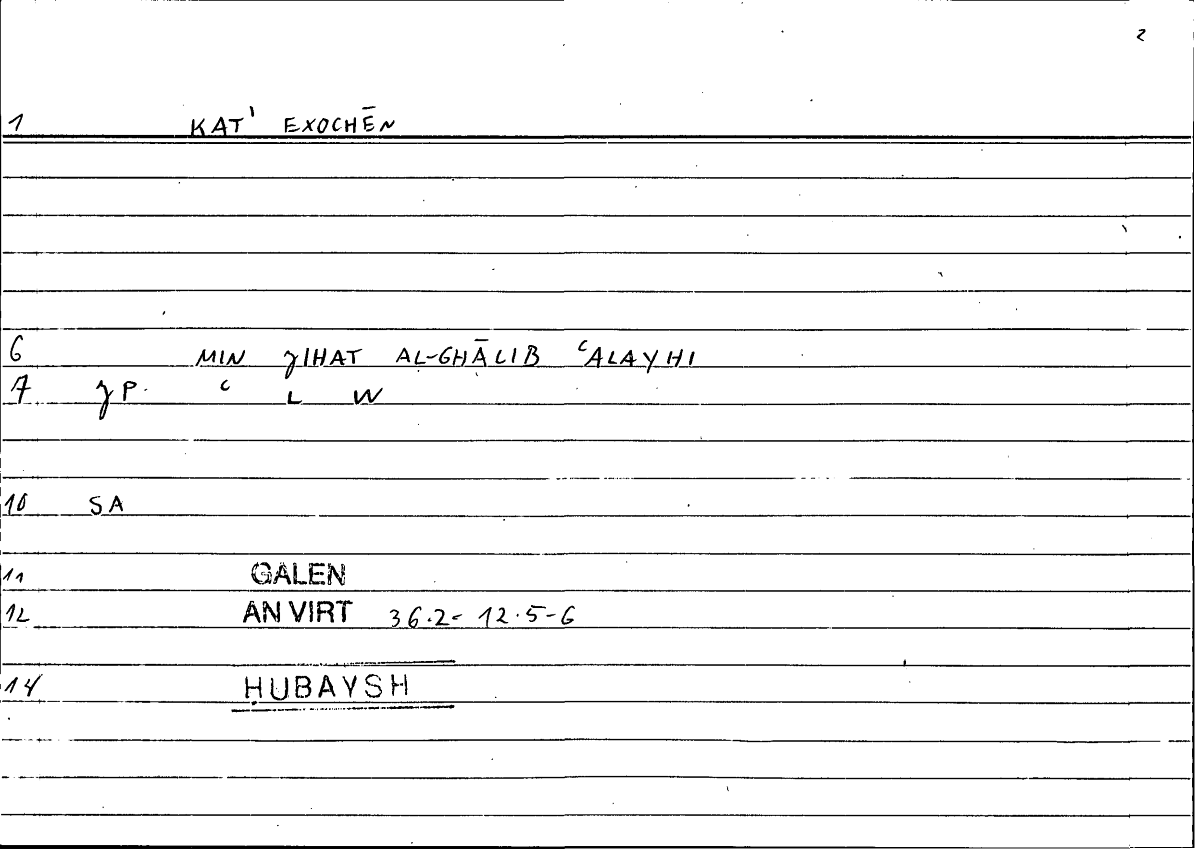 2
1 KAT' EXOCHĒN
6 MIN ȷIHAT AL-GHĀLIB ʿALAYHI
7 ȷP. ʿ L W
10 SA
11 GALEN
12 AN VIRT 36.2- 12.5-6
14 ḤUBAYSH